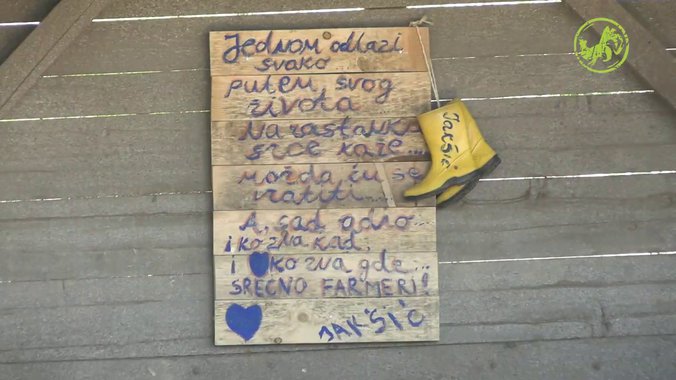 Jednom odlazi
svako...
putem svog
života
Na rastanku
srce kaže...
možda ću se
vratiti...
A, sad adio...
i ko zna kad,
i ko zna gde...
SREĆNO FARMERI!
JAKŠIĆ
Jakšić